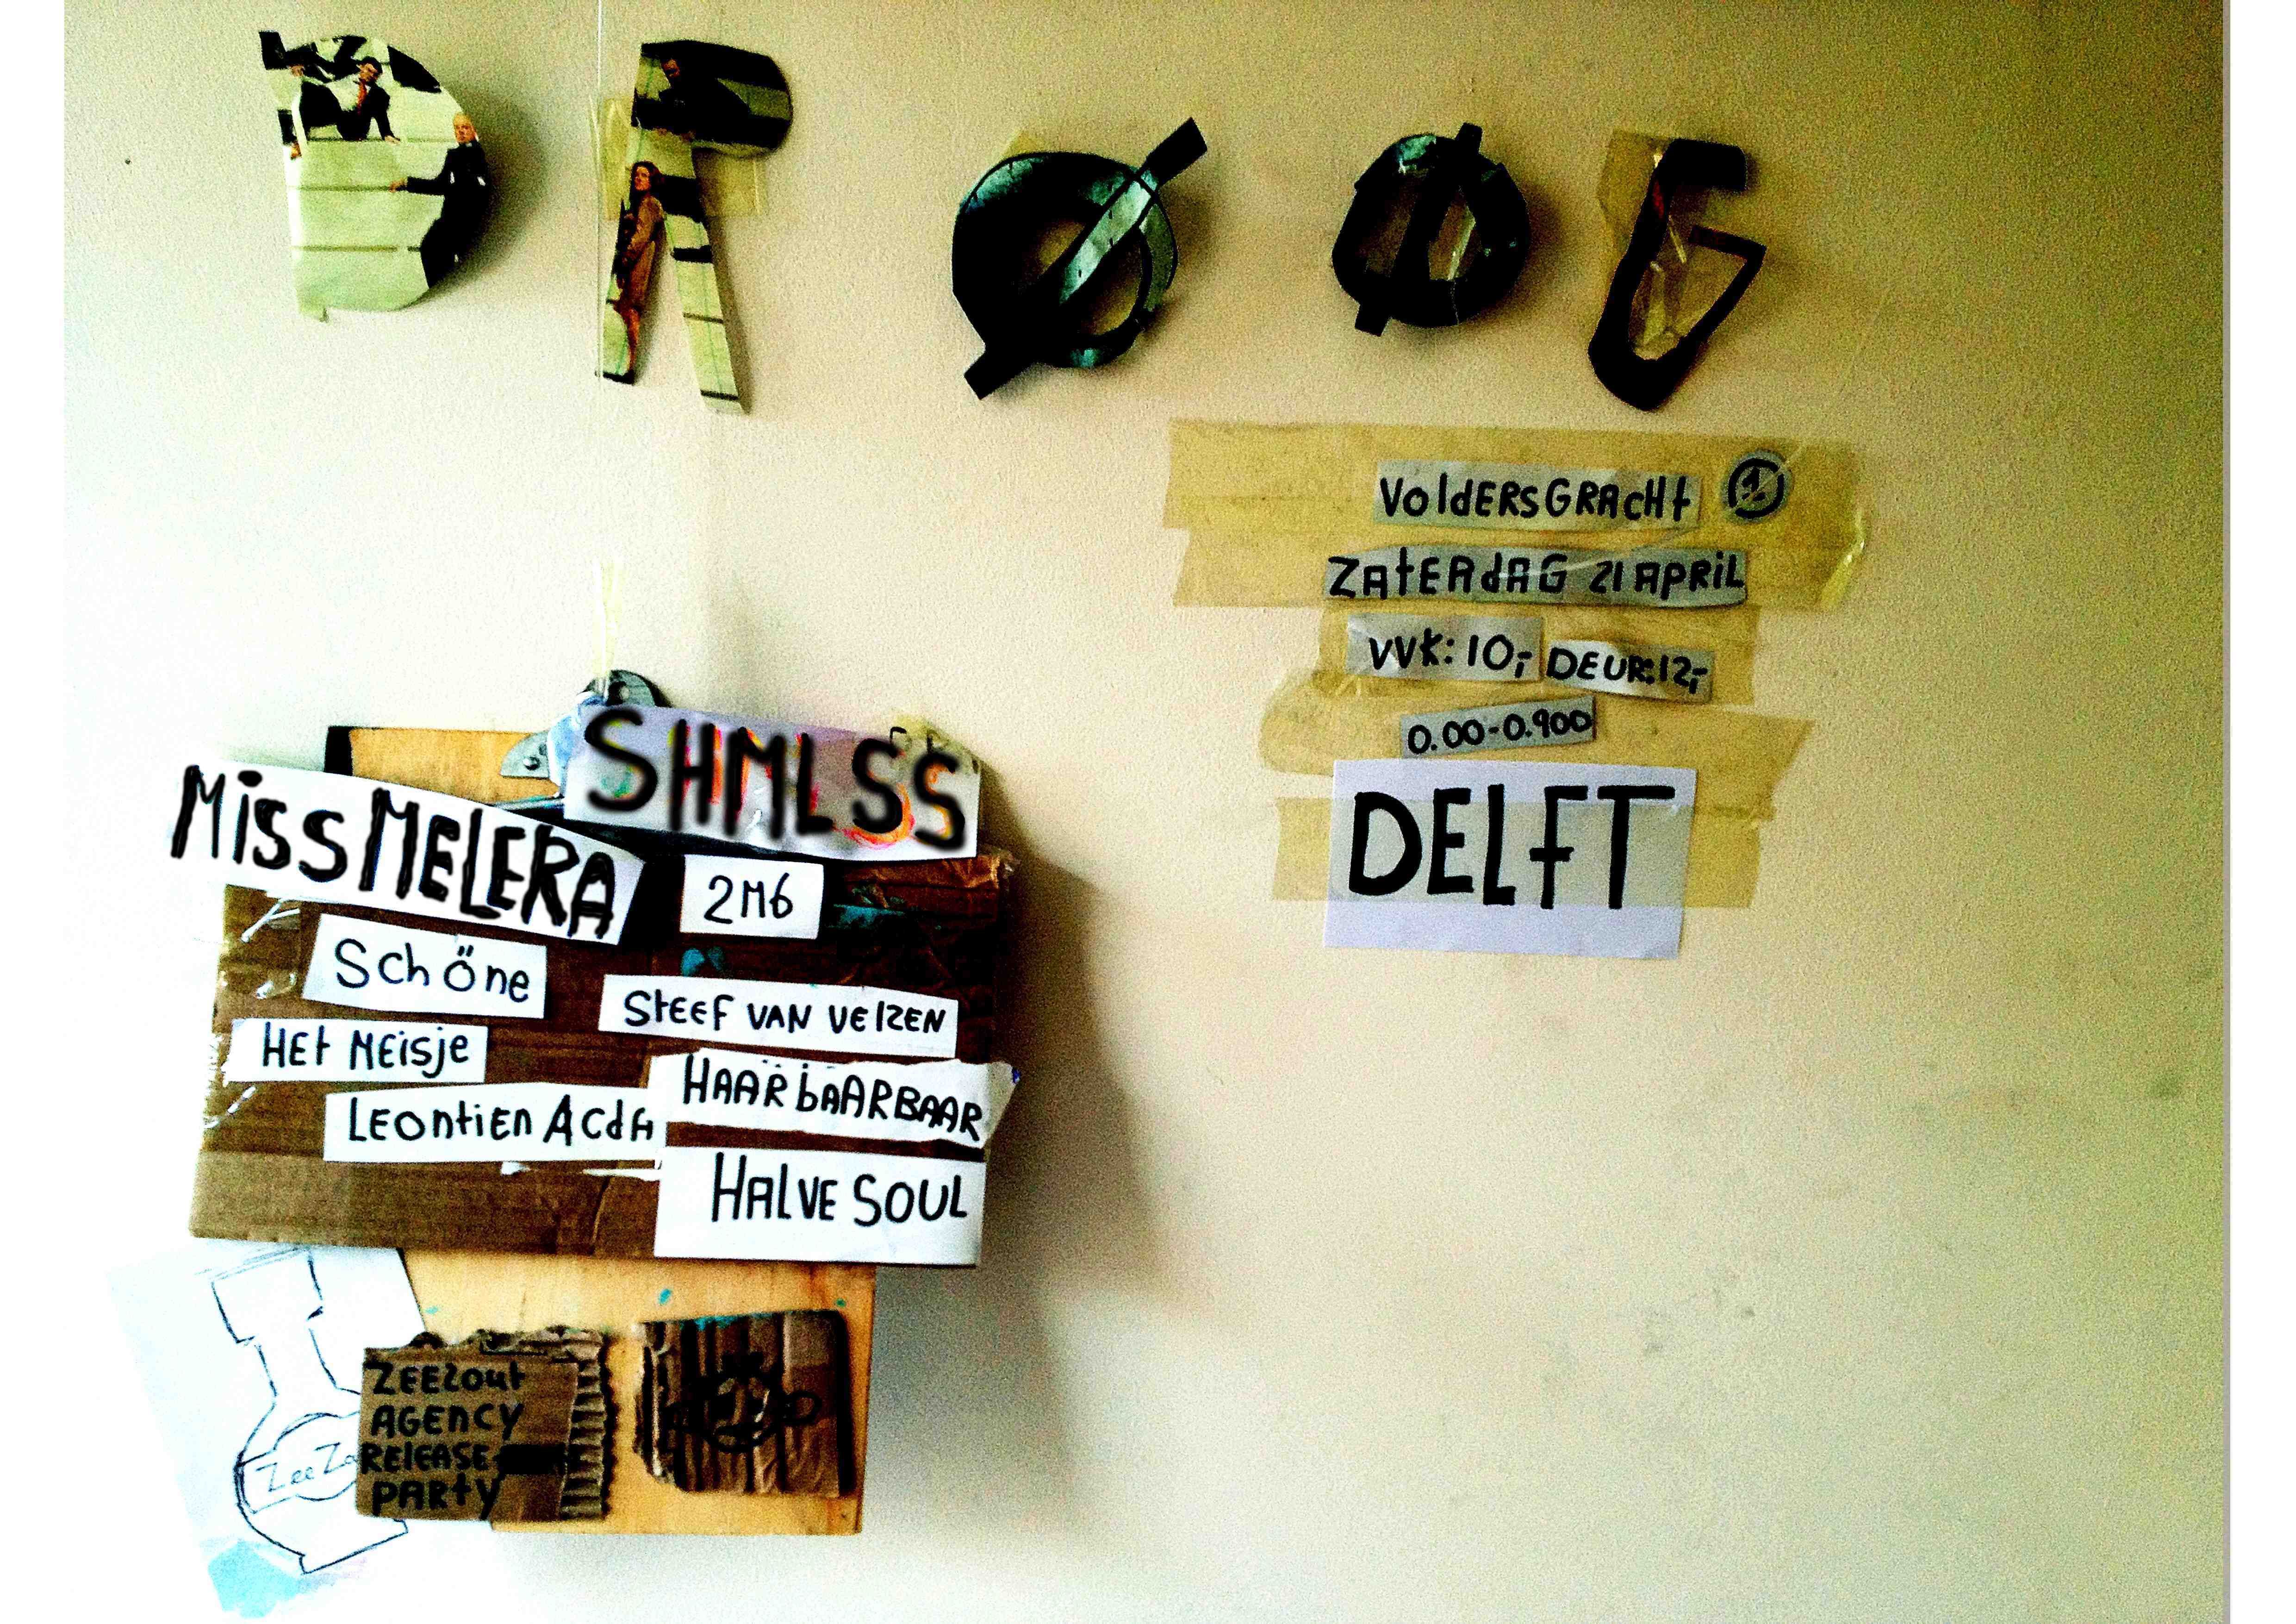 DRØØG
VoldERSGRAcHt 1
ZAtERdAG 21 APRiL
VVK: 10,- DEUR:12,-
0.00-0.900
DELFT
SHMLSS
MissMELERA
2M6
SchÖne
StEEF VAN VElZEN
HEt MEisje
HAARbAARBAAR
LEOntiEn AcdA
HALVE SOUL
ZEEZout
AGEnCY
RElEASE
PARtY
ZeeZo